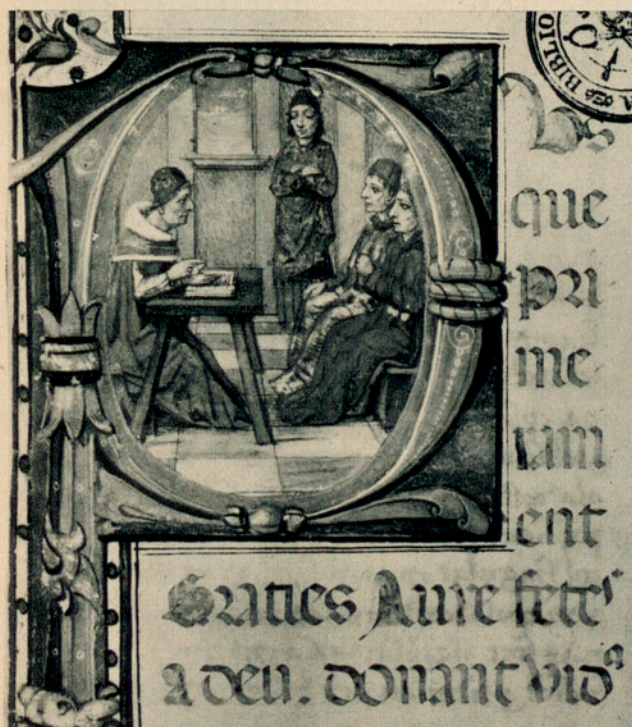 que
pri
me
ram
ent
Gracies Aure fetes
a deu. donant vida
BIBLIO